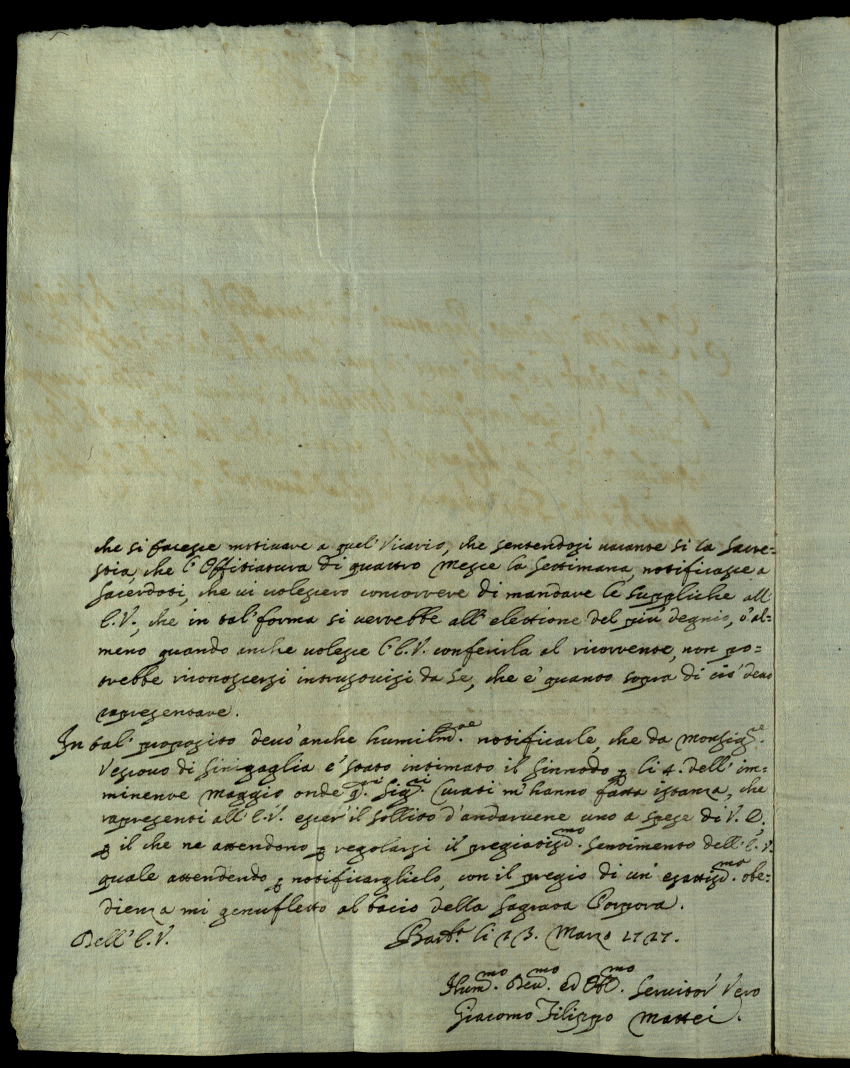 che si facesse motivare a quel Vicario, che sentendosi vacante si la Sacre=
stia, che l'Offitiatura di quattro Messe la Settimana, notificasse a
Sacerdoti, che vi volessero concorrere di mandare le suppliche all
E.V., che in tal forma si verrebbe all'elettione del più degnio, o' al=
meno quando anche volesse l'E.V. conferirla al ricorrente, non po=
trebbe riconoscersi intrusovisi da se, che e' quanto sopra di ciò devo
rapresentare.
In tal proposito devo' anche humilm.te notificarle, che da Monsig.re
Vescovo di Sinigaglia e' stato intimato il Sinnodo p li 4. dell' im=
minente Maggio onde q.ti Sig.ri Curati m'hanno fatta istanza, che
rapresenti all'E.V. esser il sollito d'andarvene uno a spese di
p il che ne attendono p regolarsi il pregiatiss.mo sentimento dell'E.V.
quale attendendo p notificarglielo, con il pregio di un' esattiss.ma obe=
dienza mi genufletto al bacio della Sagrata Porpora.
Dell'E.V.
li 23. Marzo 1727.
Ilum.mo Dev.mo ed Obb.mo Servitor Vero
Giacomo Filippo Mattei.